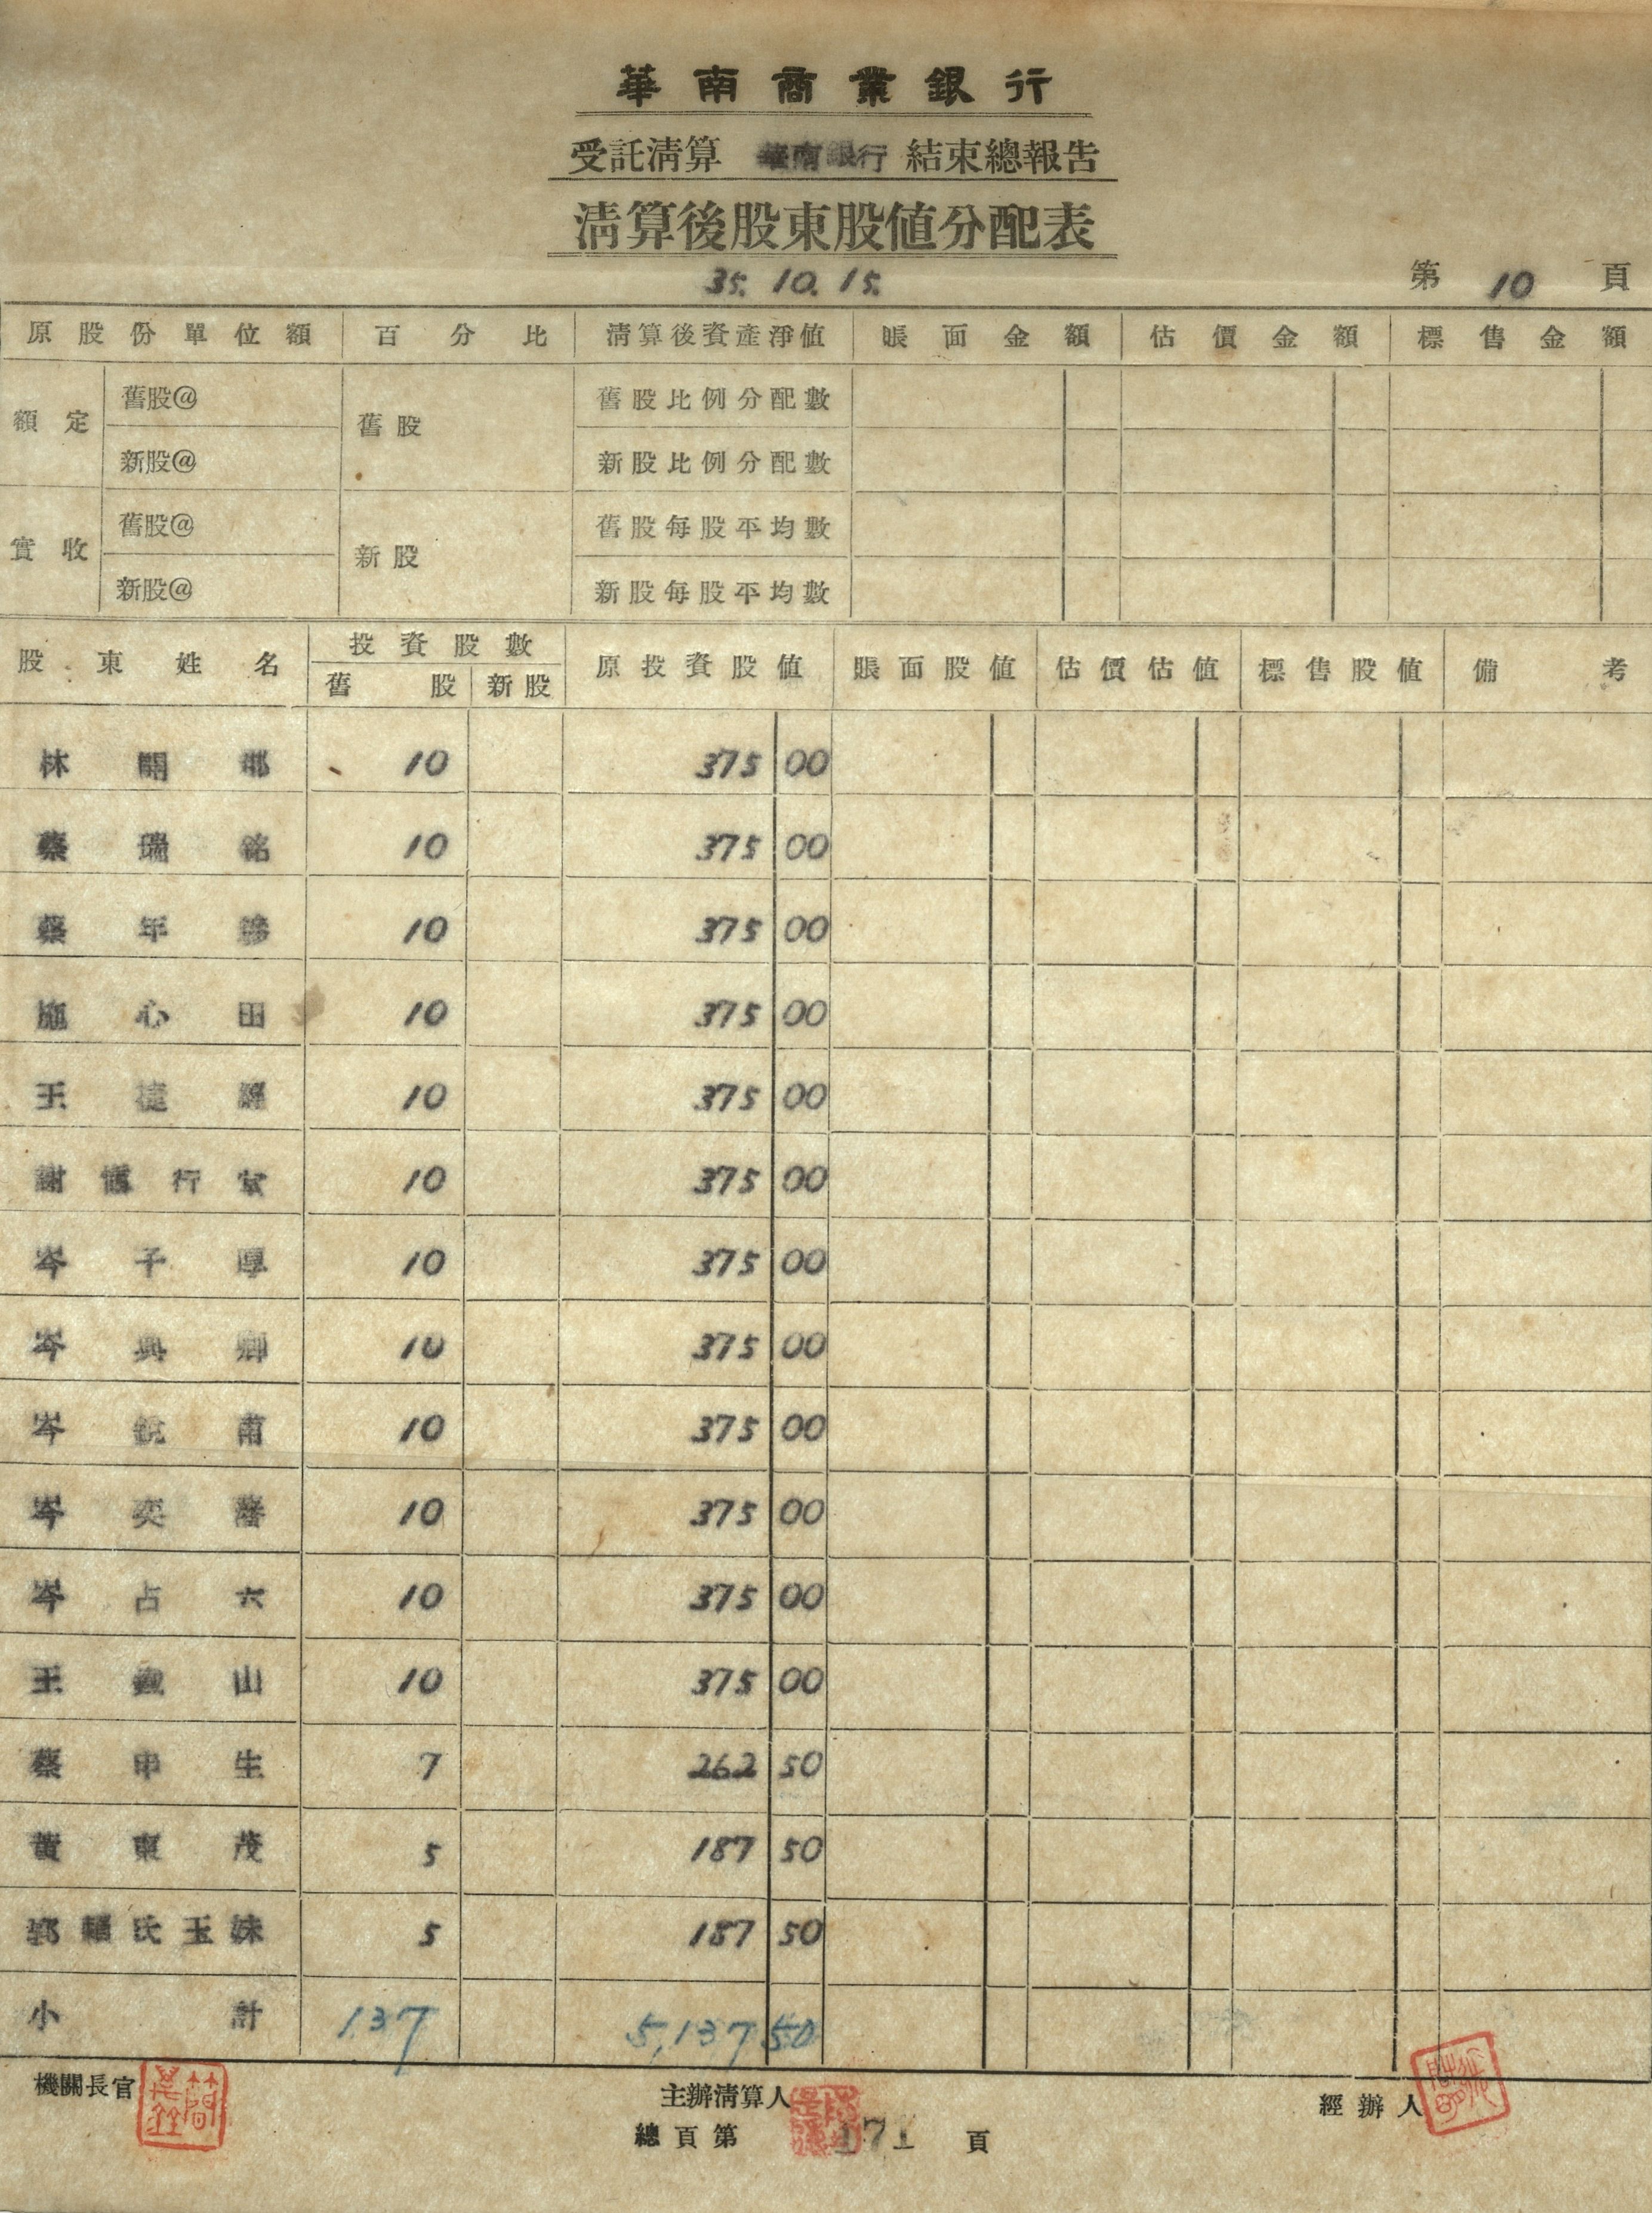 華南商業銀行
受託清算 華南銀行 結束總報告
清算後股東股值分配表
35. 10. 15.
第 10 頁
原股份單位額 百分比 清算後資產淨值 賬面金額 估價金額 標售金額
額定 舊股@ 舊股 舊股比例分配數
新股@ 新股比例分配數
實收 舊股@ 新股 舊股每股平均數
新股@ 新股每股平均數
股東姓名 投資股數 原投資股值 賬面股值 估價估值 標售股值 備考
舊股 新股
林 10 375 00
蔡瑞銘 10 375 00
蔡年 10 375 00
施心田 10 375 00
王 10 375 00
謝 行 10 375 00
岑子厚 10 375 00
岑 卿 10 375 00
岑銳甫 10 375 00
岑奕 10 375 00
岑占六 10 375 00
王 山 10 375 00
蔡申生 7 262 50
黃東茂 5 187 50
郭賴氏玉妹 5 187 50
小計 137 5,137 50
機關長官 主辦清算人 經辦人
總頁第 171 頁